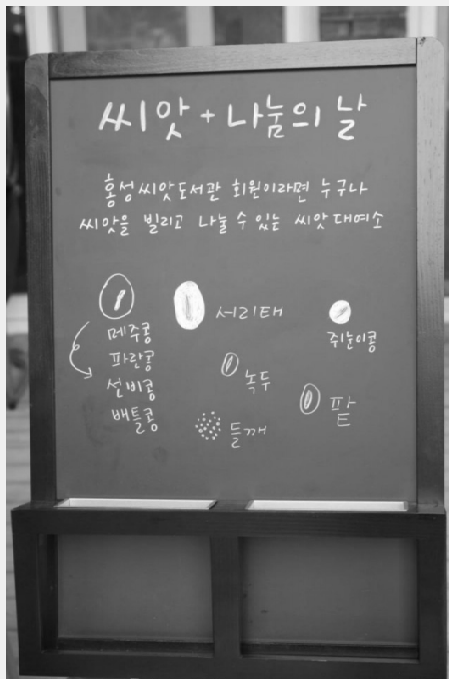 씨앗 + 나눔의 날
홍성씨앗도서관 회원이라면 누구나
씨앗을 빌리고 나눌 수 있는 씨앗대여소
메주콩
파란콩
선비콩
배틀콩
서리태
쥐눈이콩
녹두
팥
들깨